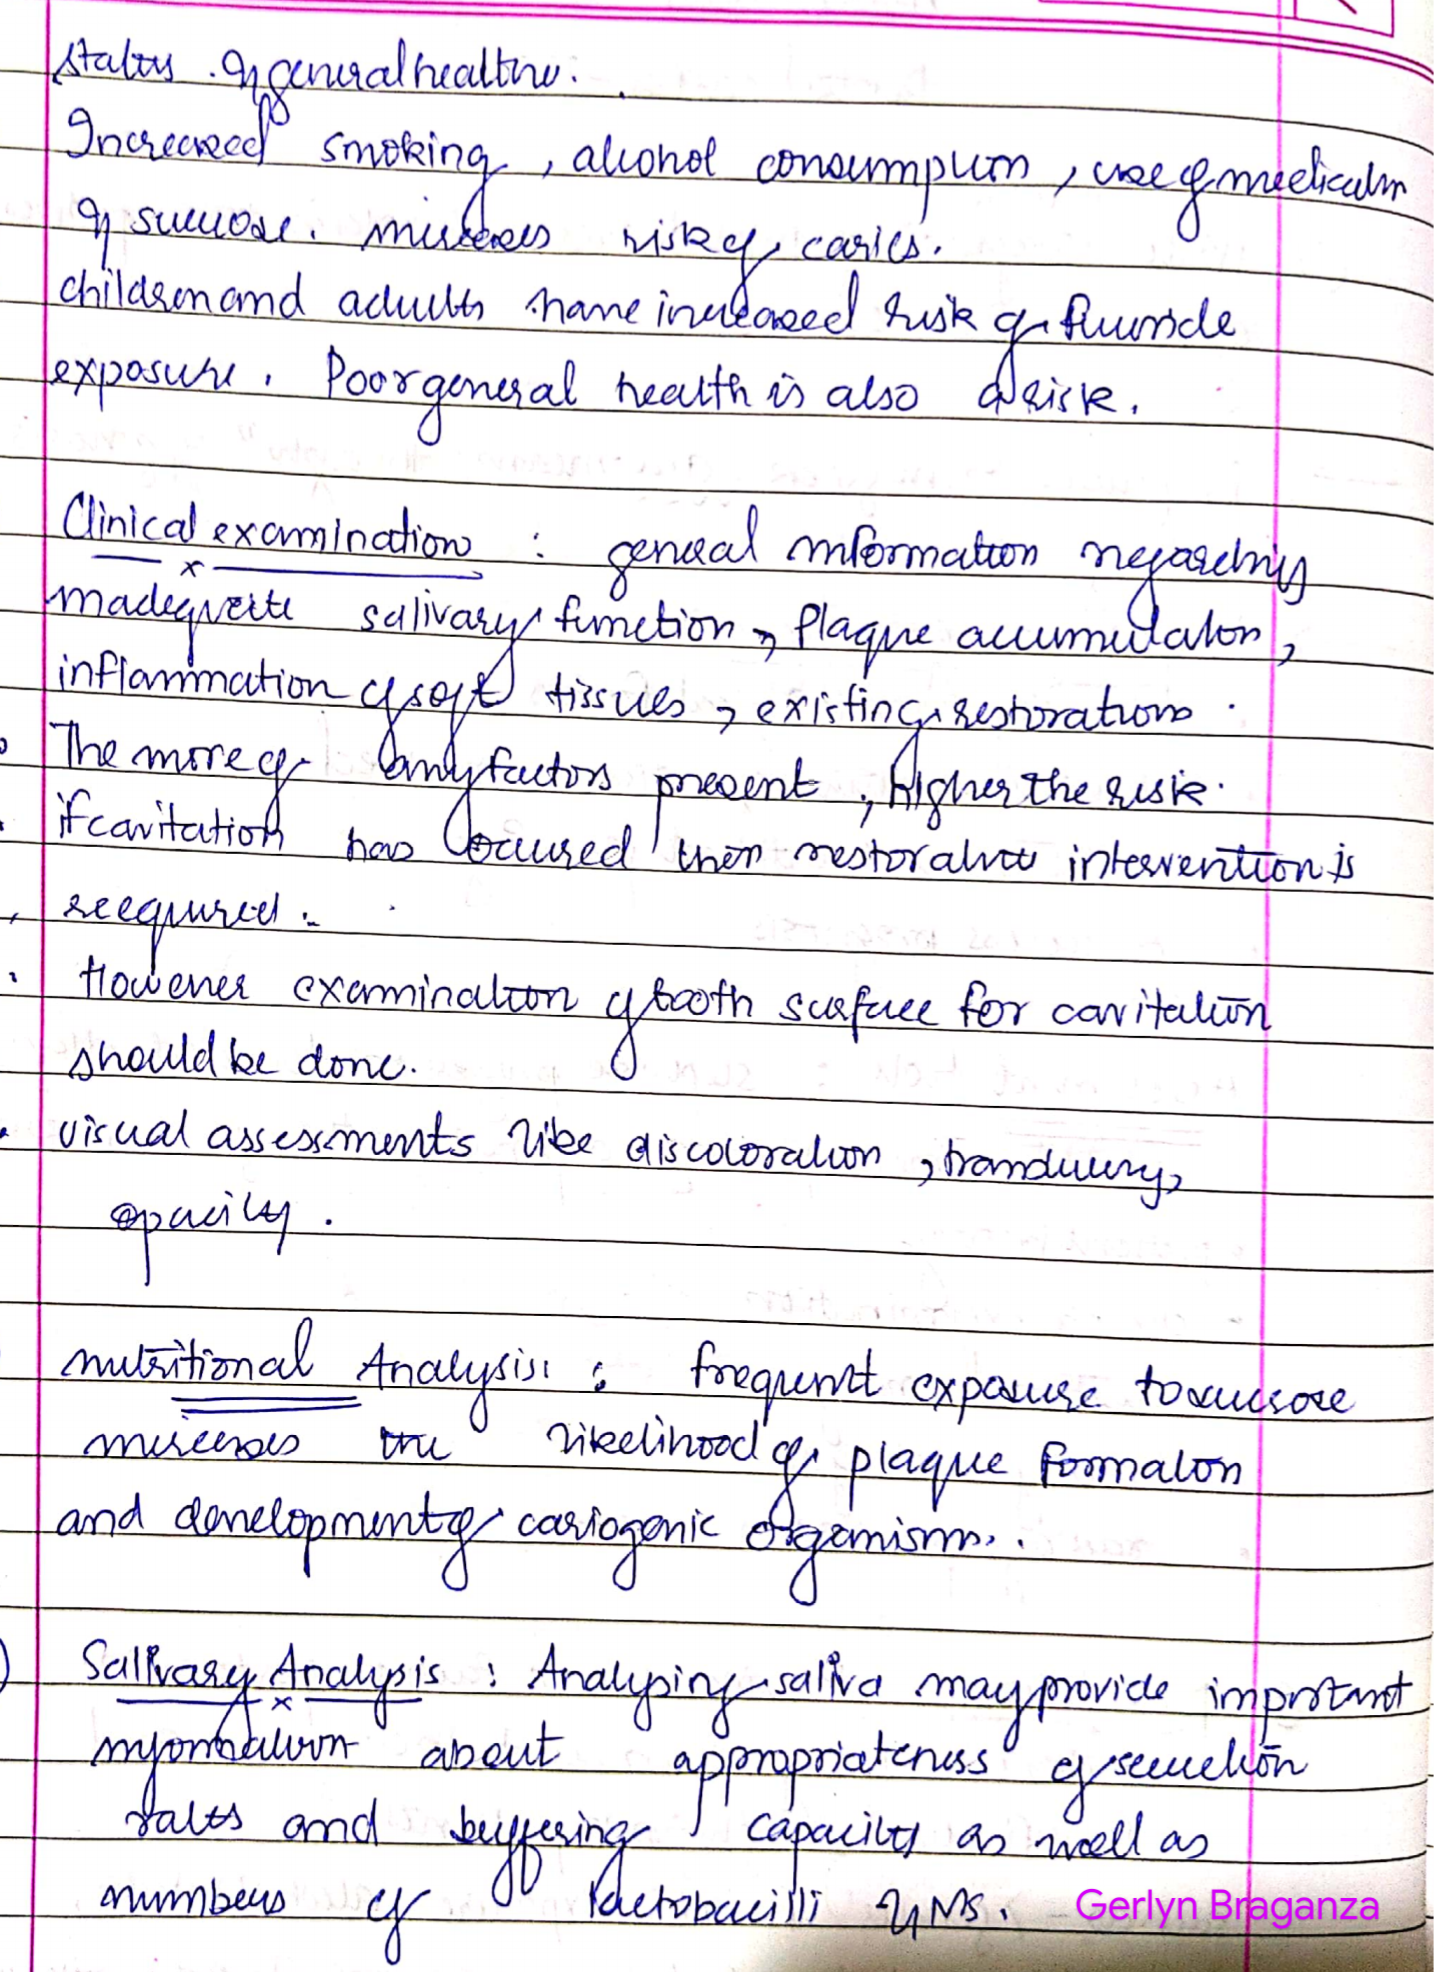 status & general health.
Increased smoking, alcohol consumption, use of medication
& sucrose. increases risk of caries.
children and adults have increased risk of fluoride
exposure. Poor general health is also a risk.
Clinical examination : general information regarding
inadequate salivary function, Plaque accumulation,
inflammation of soft tissues, existing restorations.
The more of any factors present, higher the risk.
if cavitation has occured then restorative intervention is
required.
However examination of tooth surface for cavitation
should be done.
visual assessments like discoloration, translucency,
opacity.
nutritional Analysis : frequent exposure to sucrose
increases the likelihood of plaque formation
and development of cariogenic organisms.
Salivary Analysis : Analysing saliva may provide important
information about appropriateness of secretion
rates and buffering capacity as well as
numbers of lactobacilli & MS.
Gerlyn Braganza